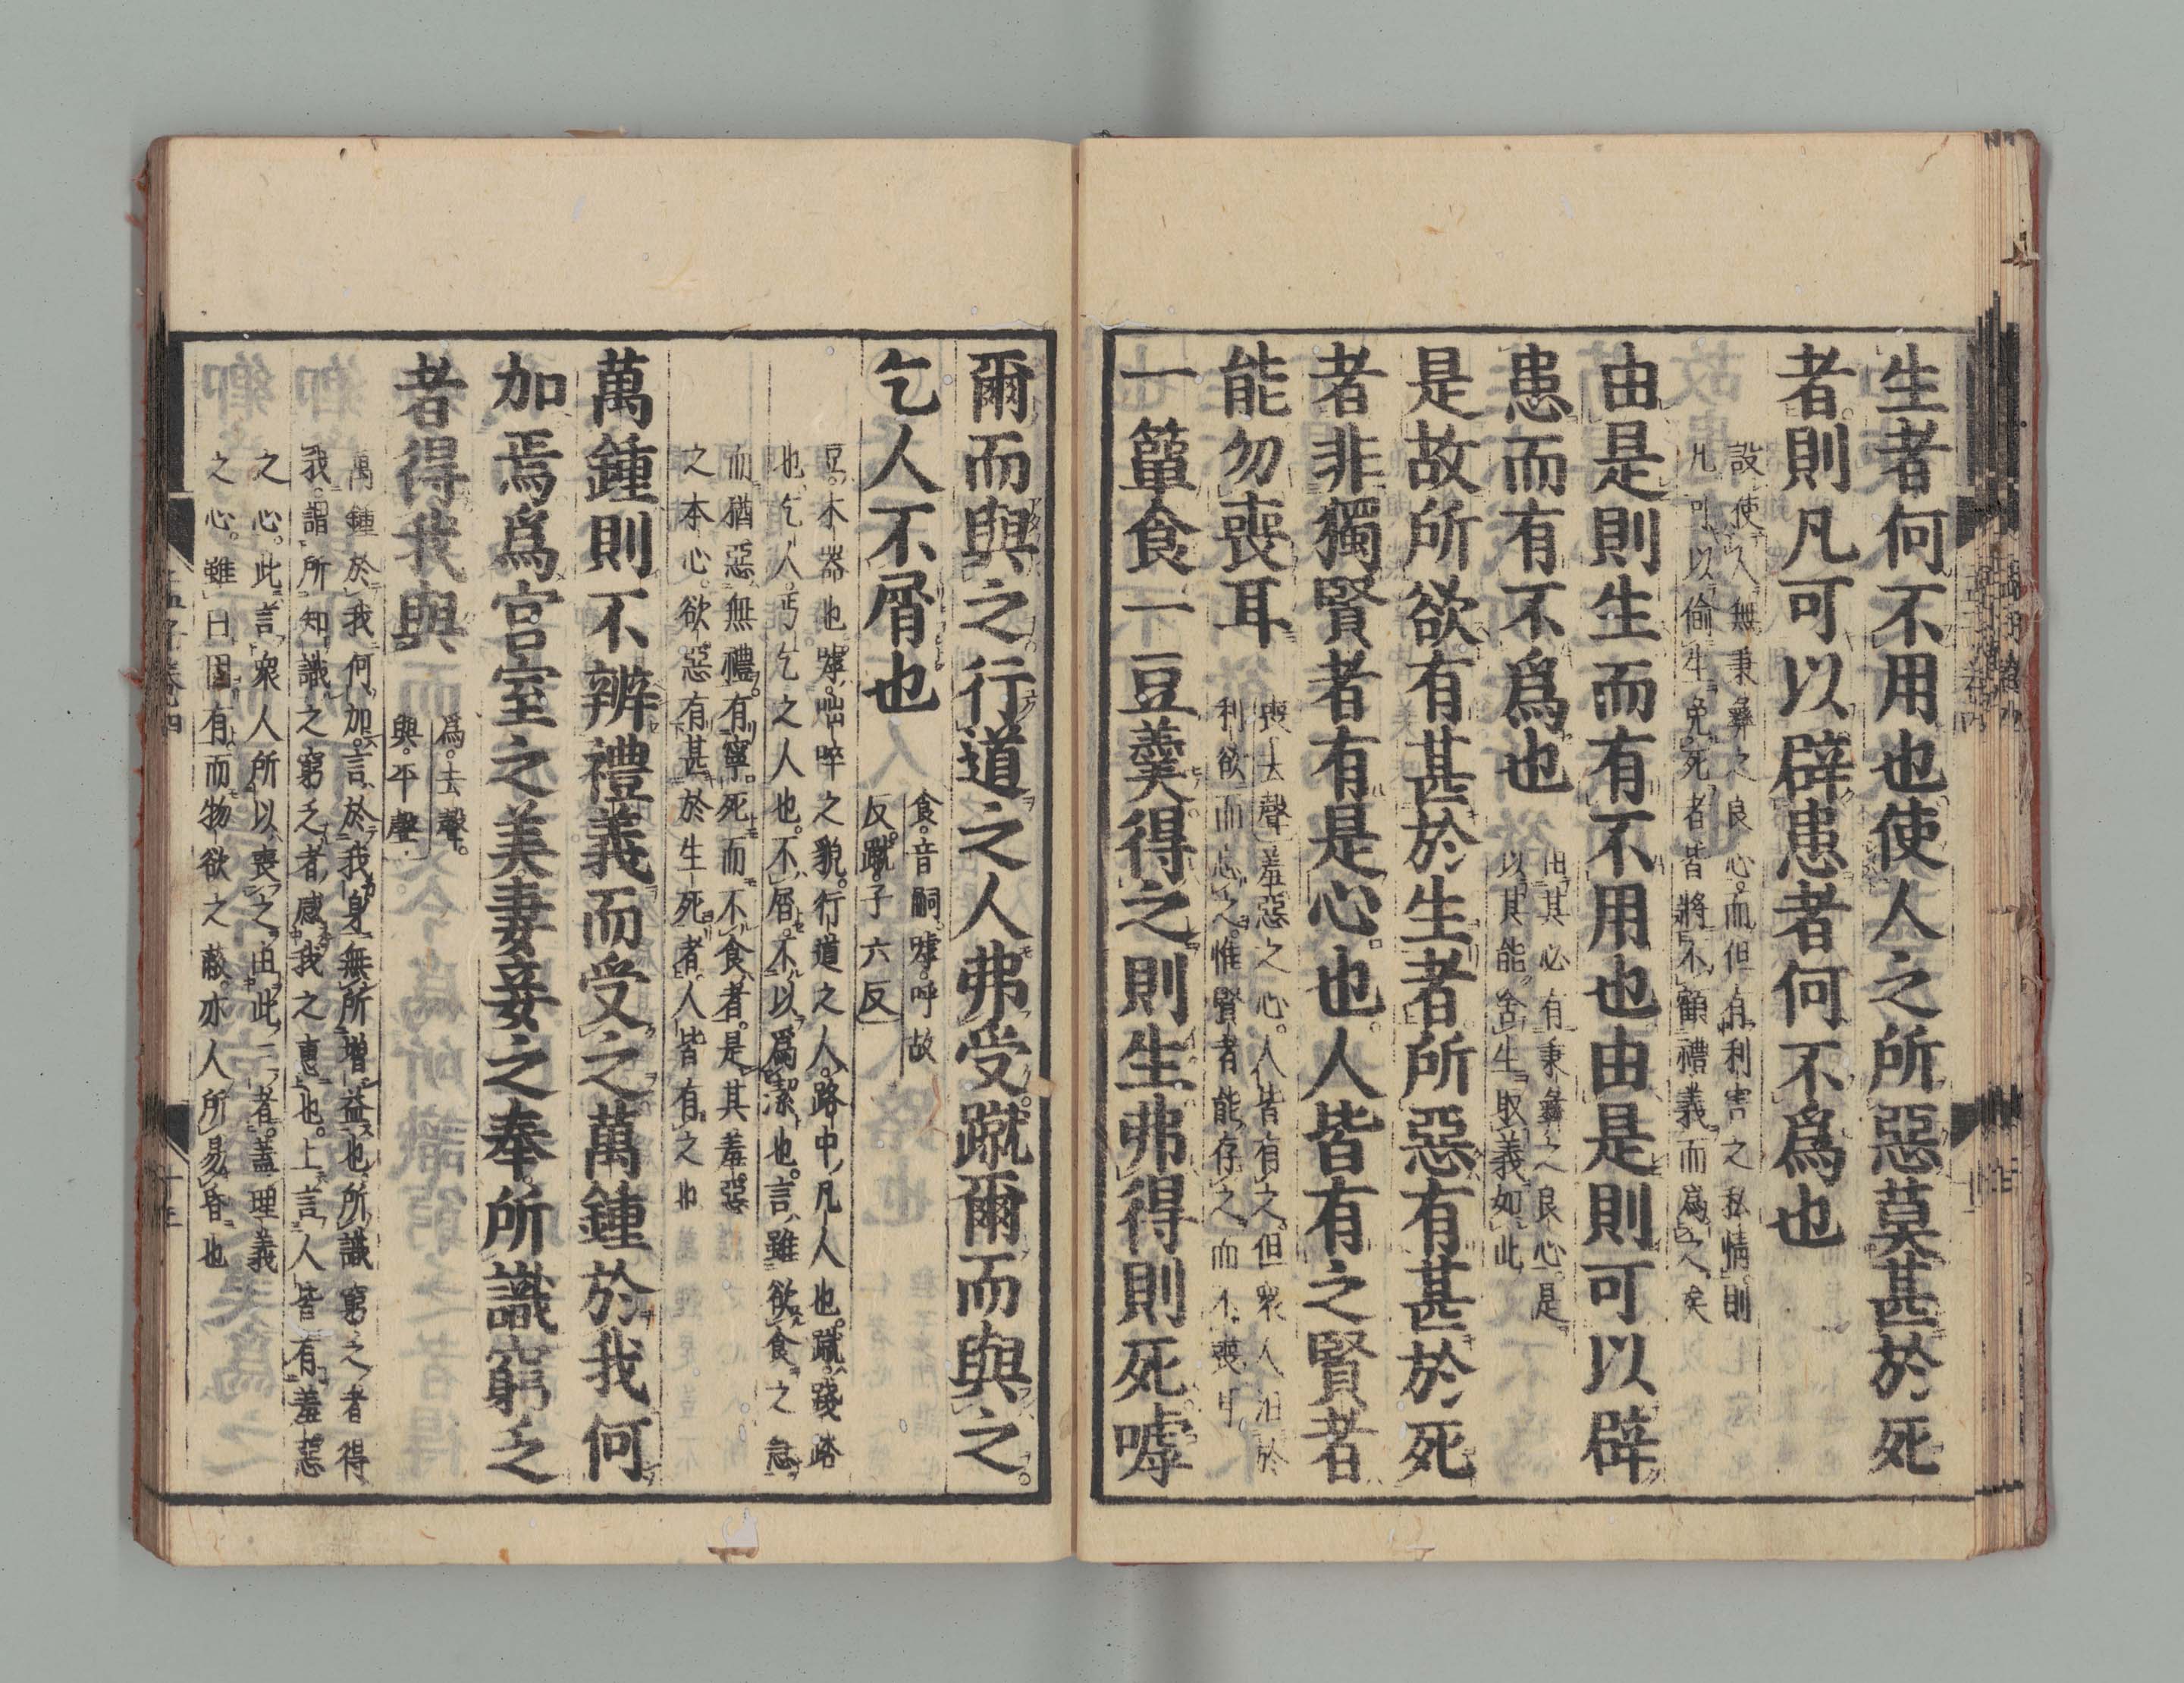 生者何不用也使人之所惡莫甚於死
者則凡可以辟患者何不爲也
設使人無秉彝之良心而但有利害之私情則
凡可以偷生免死者皆將不顧禮義而爲之矣
由是則生而有不用也由是則可以辟
患而有不爲也
由其必有秉彝之良心是
以其能舍生取義如此
是故所欲有甚於生者所惡有甚於死
者非獨賢者有是心也人皆有之賢者
能勿喪耳
喪去聲羞惡之心人皆有之但眾人汨於
利欲而忘之惟賢者能存之而不喪耳
一簞食一豆羹得之則生弗得則死嘑
爾而與之行道之人弗受蹴爾而與之
乞人不屑也
食音嗣嘑呼故
反蹴子六反
豆木器也嘑咄啐之貌行道之人路中凡人也蹴踐踏
也乞人丐乞之人也不屑不以爲潔也言雖欲食之急
而猶惡無禮有寧死而不食者是其羞惡
之本心欲惡有甚於生死者人皆有之也
萬鍾則不辨禮義而受之萬鍾於我何
加焉爲宮室之美妻妾之奉所識窮乏
者得我與
爲去聲
與平聲
萬鍾於我何加言於我身無所增益也所識窮乏者得
我謂所知識之窮乏者感我之惠也上言人皆有羞惡
之心此言眾人所以喪之由此二者蓋理義
之心雖曰固有而物欲之蔽亦人所易昏也
孟子卷四